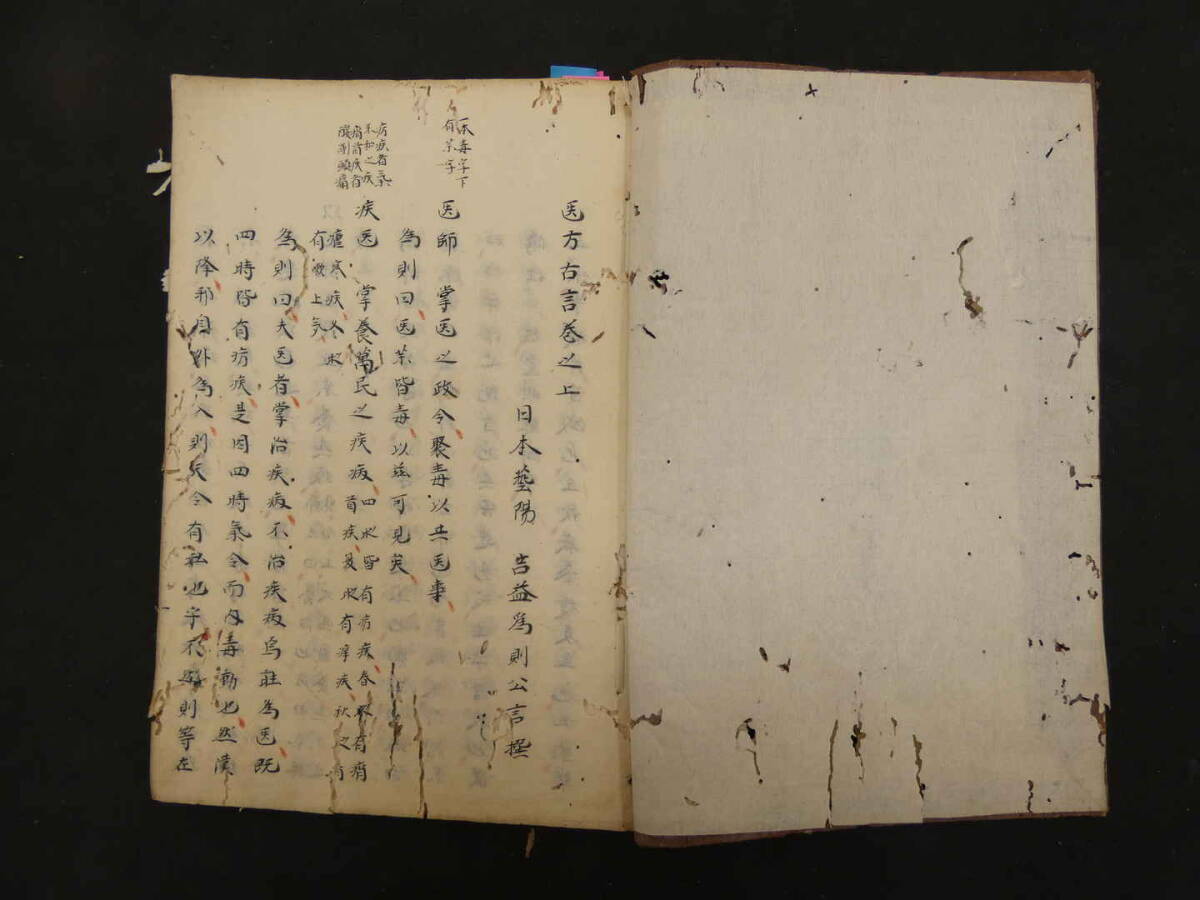 本毒字下
有薬字
癘疾者氣
不和之疾
痟首疾者
酸削頭痛
医方古言巻之上
日本藝陽 吉益爲則公言撰
医師 掌医之政令聚毒以共医事
為則曰医薬皆毒以茲可見矣
疾医 掌養萬民之疾病 四时皆有癘疾春时有痟
首疾夏时有痒疾秋之有
瘧寒疾冬时
有嗽上気
為則曰夫医者掌治疾病不治疾病烏在為医既
四時皆有癘疾是因四時氣令而内毒動也然漢
以降邪自外為入則天令有私也 則等在